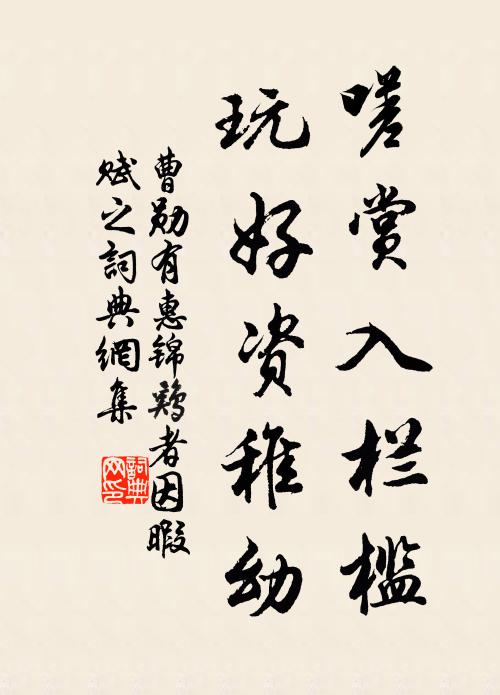 嗟赏入栏槛
玩好资稚幼
曹勋有惠锦鸡者因暇
赋之词典網集
詞典
网印